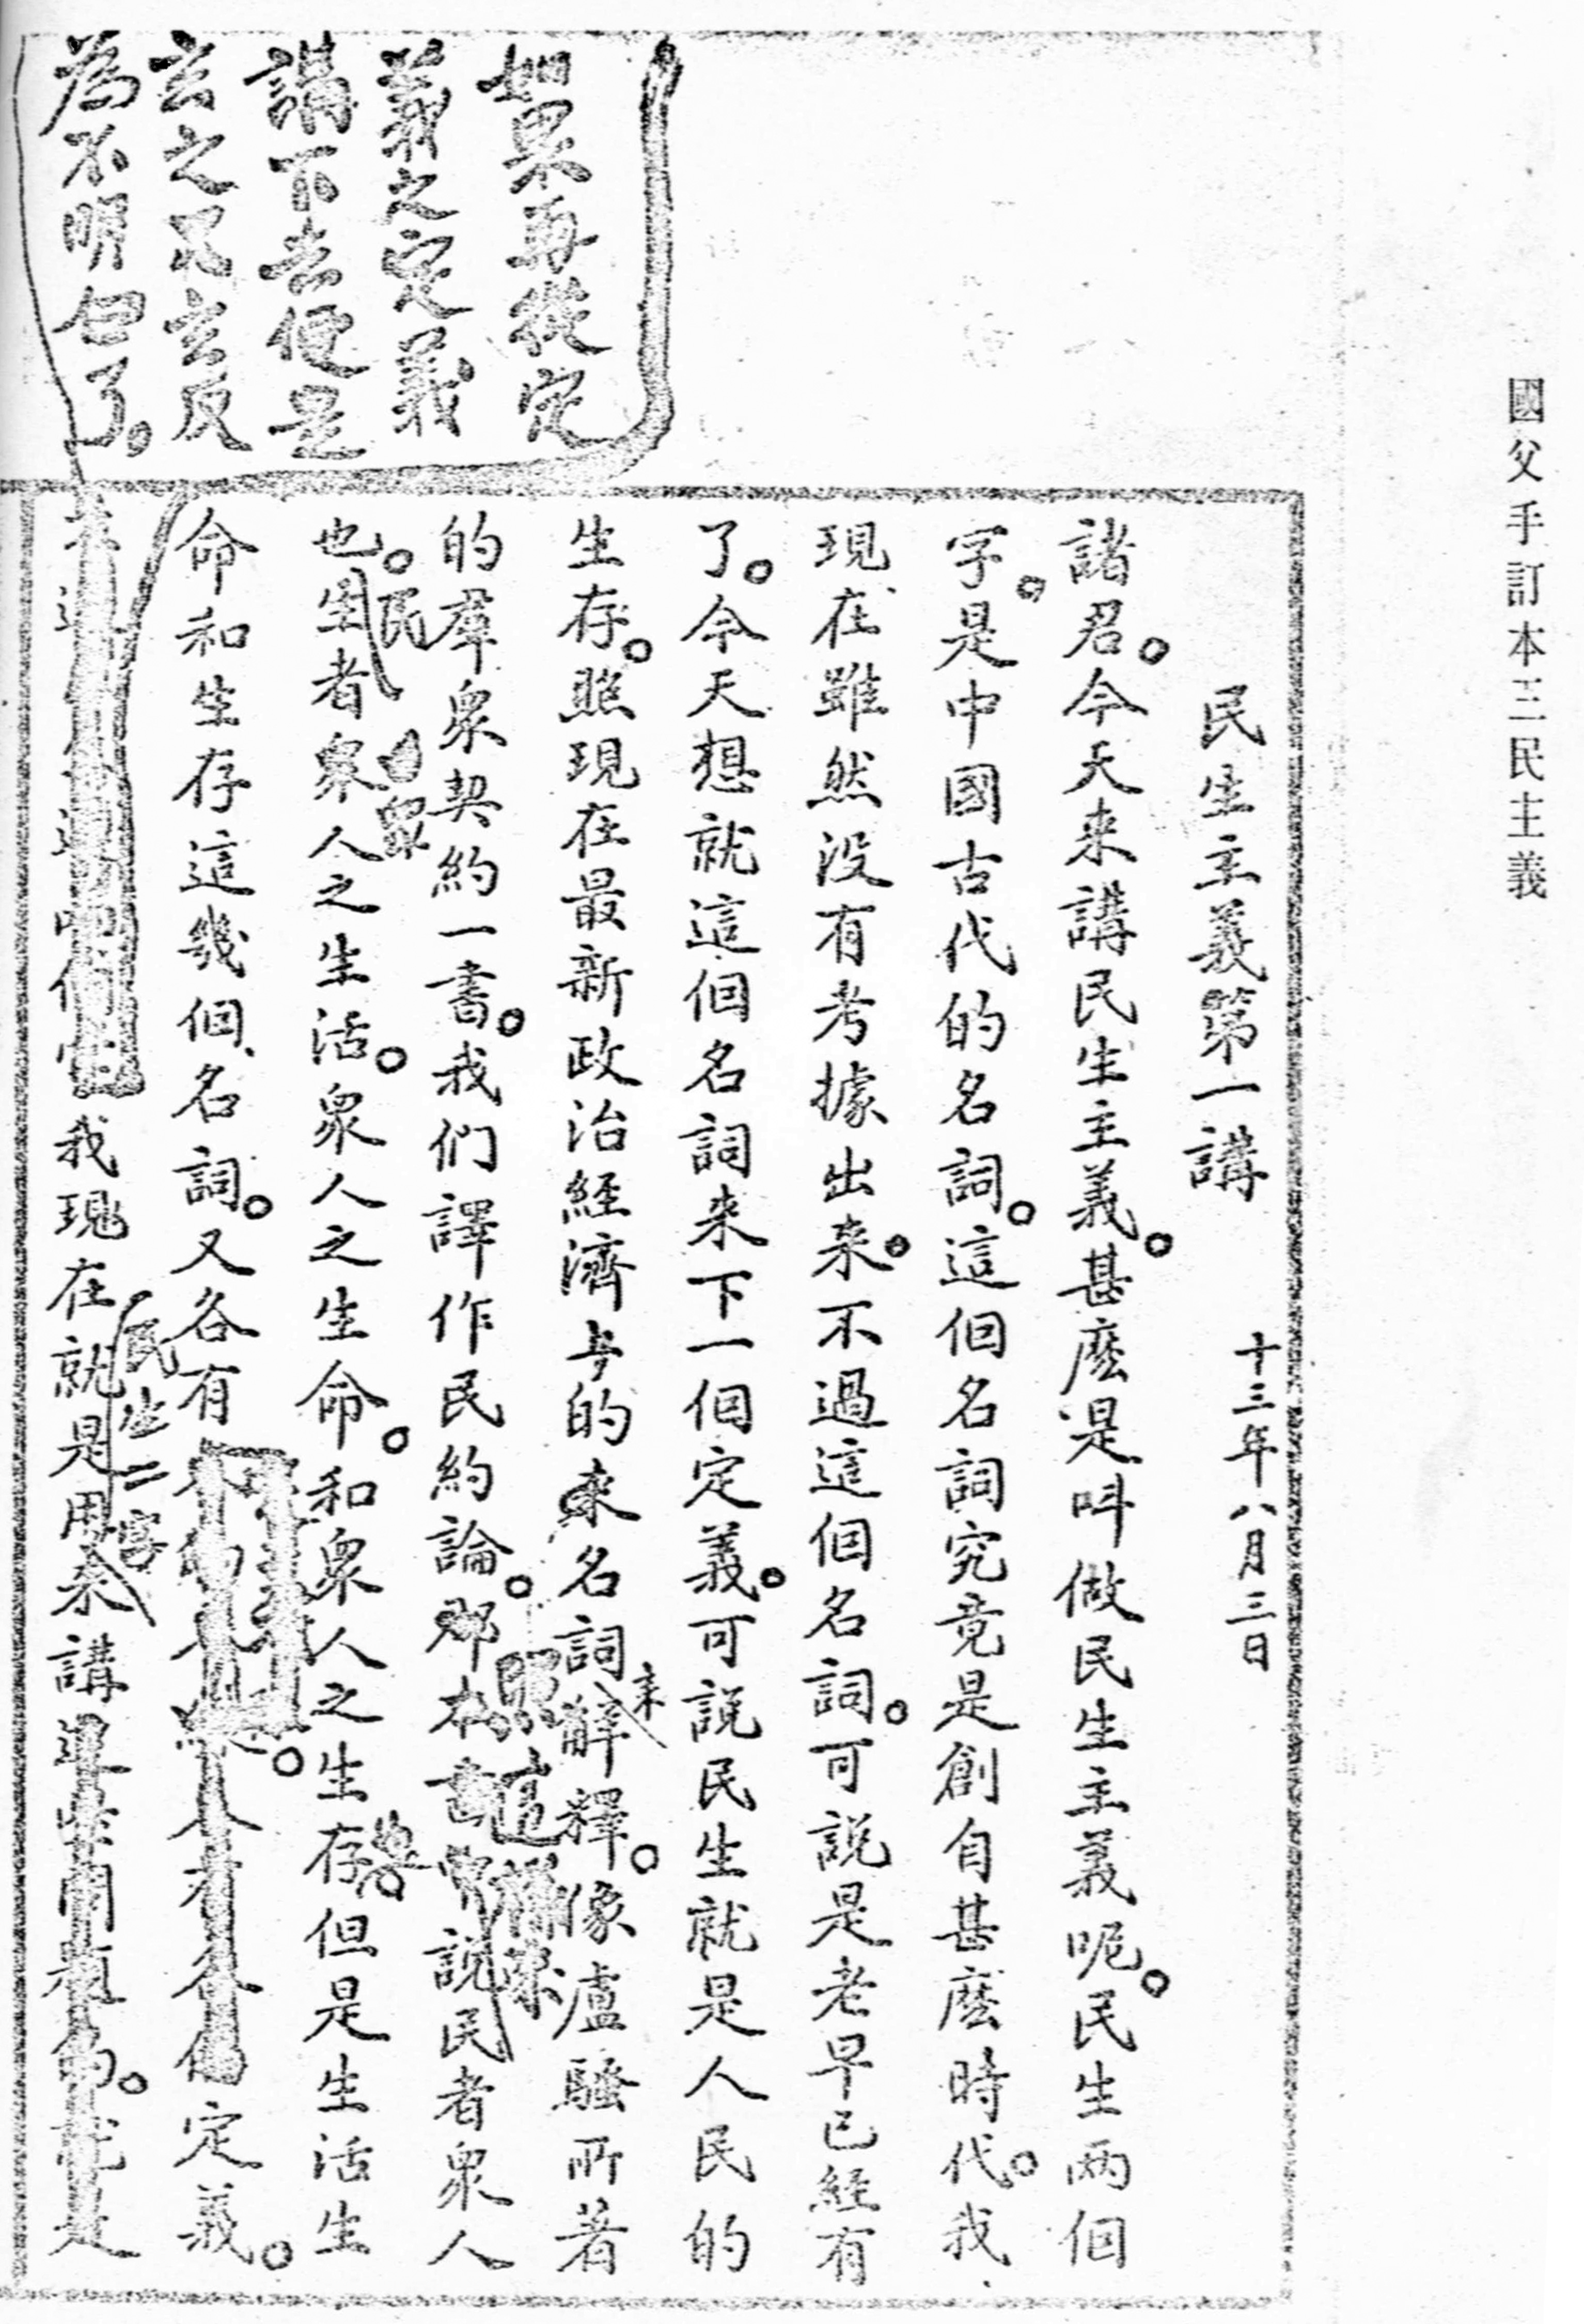 國父手訂本三民主義
民生主義第一講 十三年八月三日
諸君。今天来講民生主義。甚麽是呌做民生主義呢。民生两個
字。是中國古代的名詞。這個名詞究竟是創自甚麽時代。我
現在雖然没有考據出来。不過這個名詞。可說是老早已經有
了。今天想就這個名詞来下一個定義。可説民生就是人民的
生存。照現在最新政治經濟上的名詞解釋。像盧騷所著
来
的羣衆契約一書。我們譯作民約論。那本書説民者衆人
這
也。生者衆人之生活。衆人之生命。和衆人之生存。但是生活生
民
命和生存這幾個名詞。又各有定義。
我現在就是用来講
民生二字
如果再從定
義之定義
講下去便是
玄之又玄反
為不明白了。